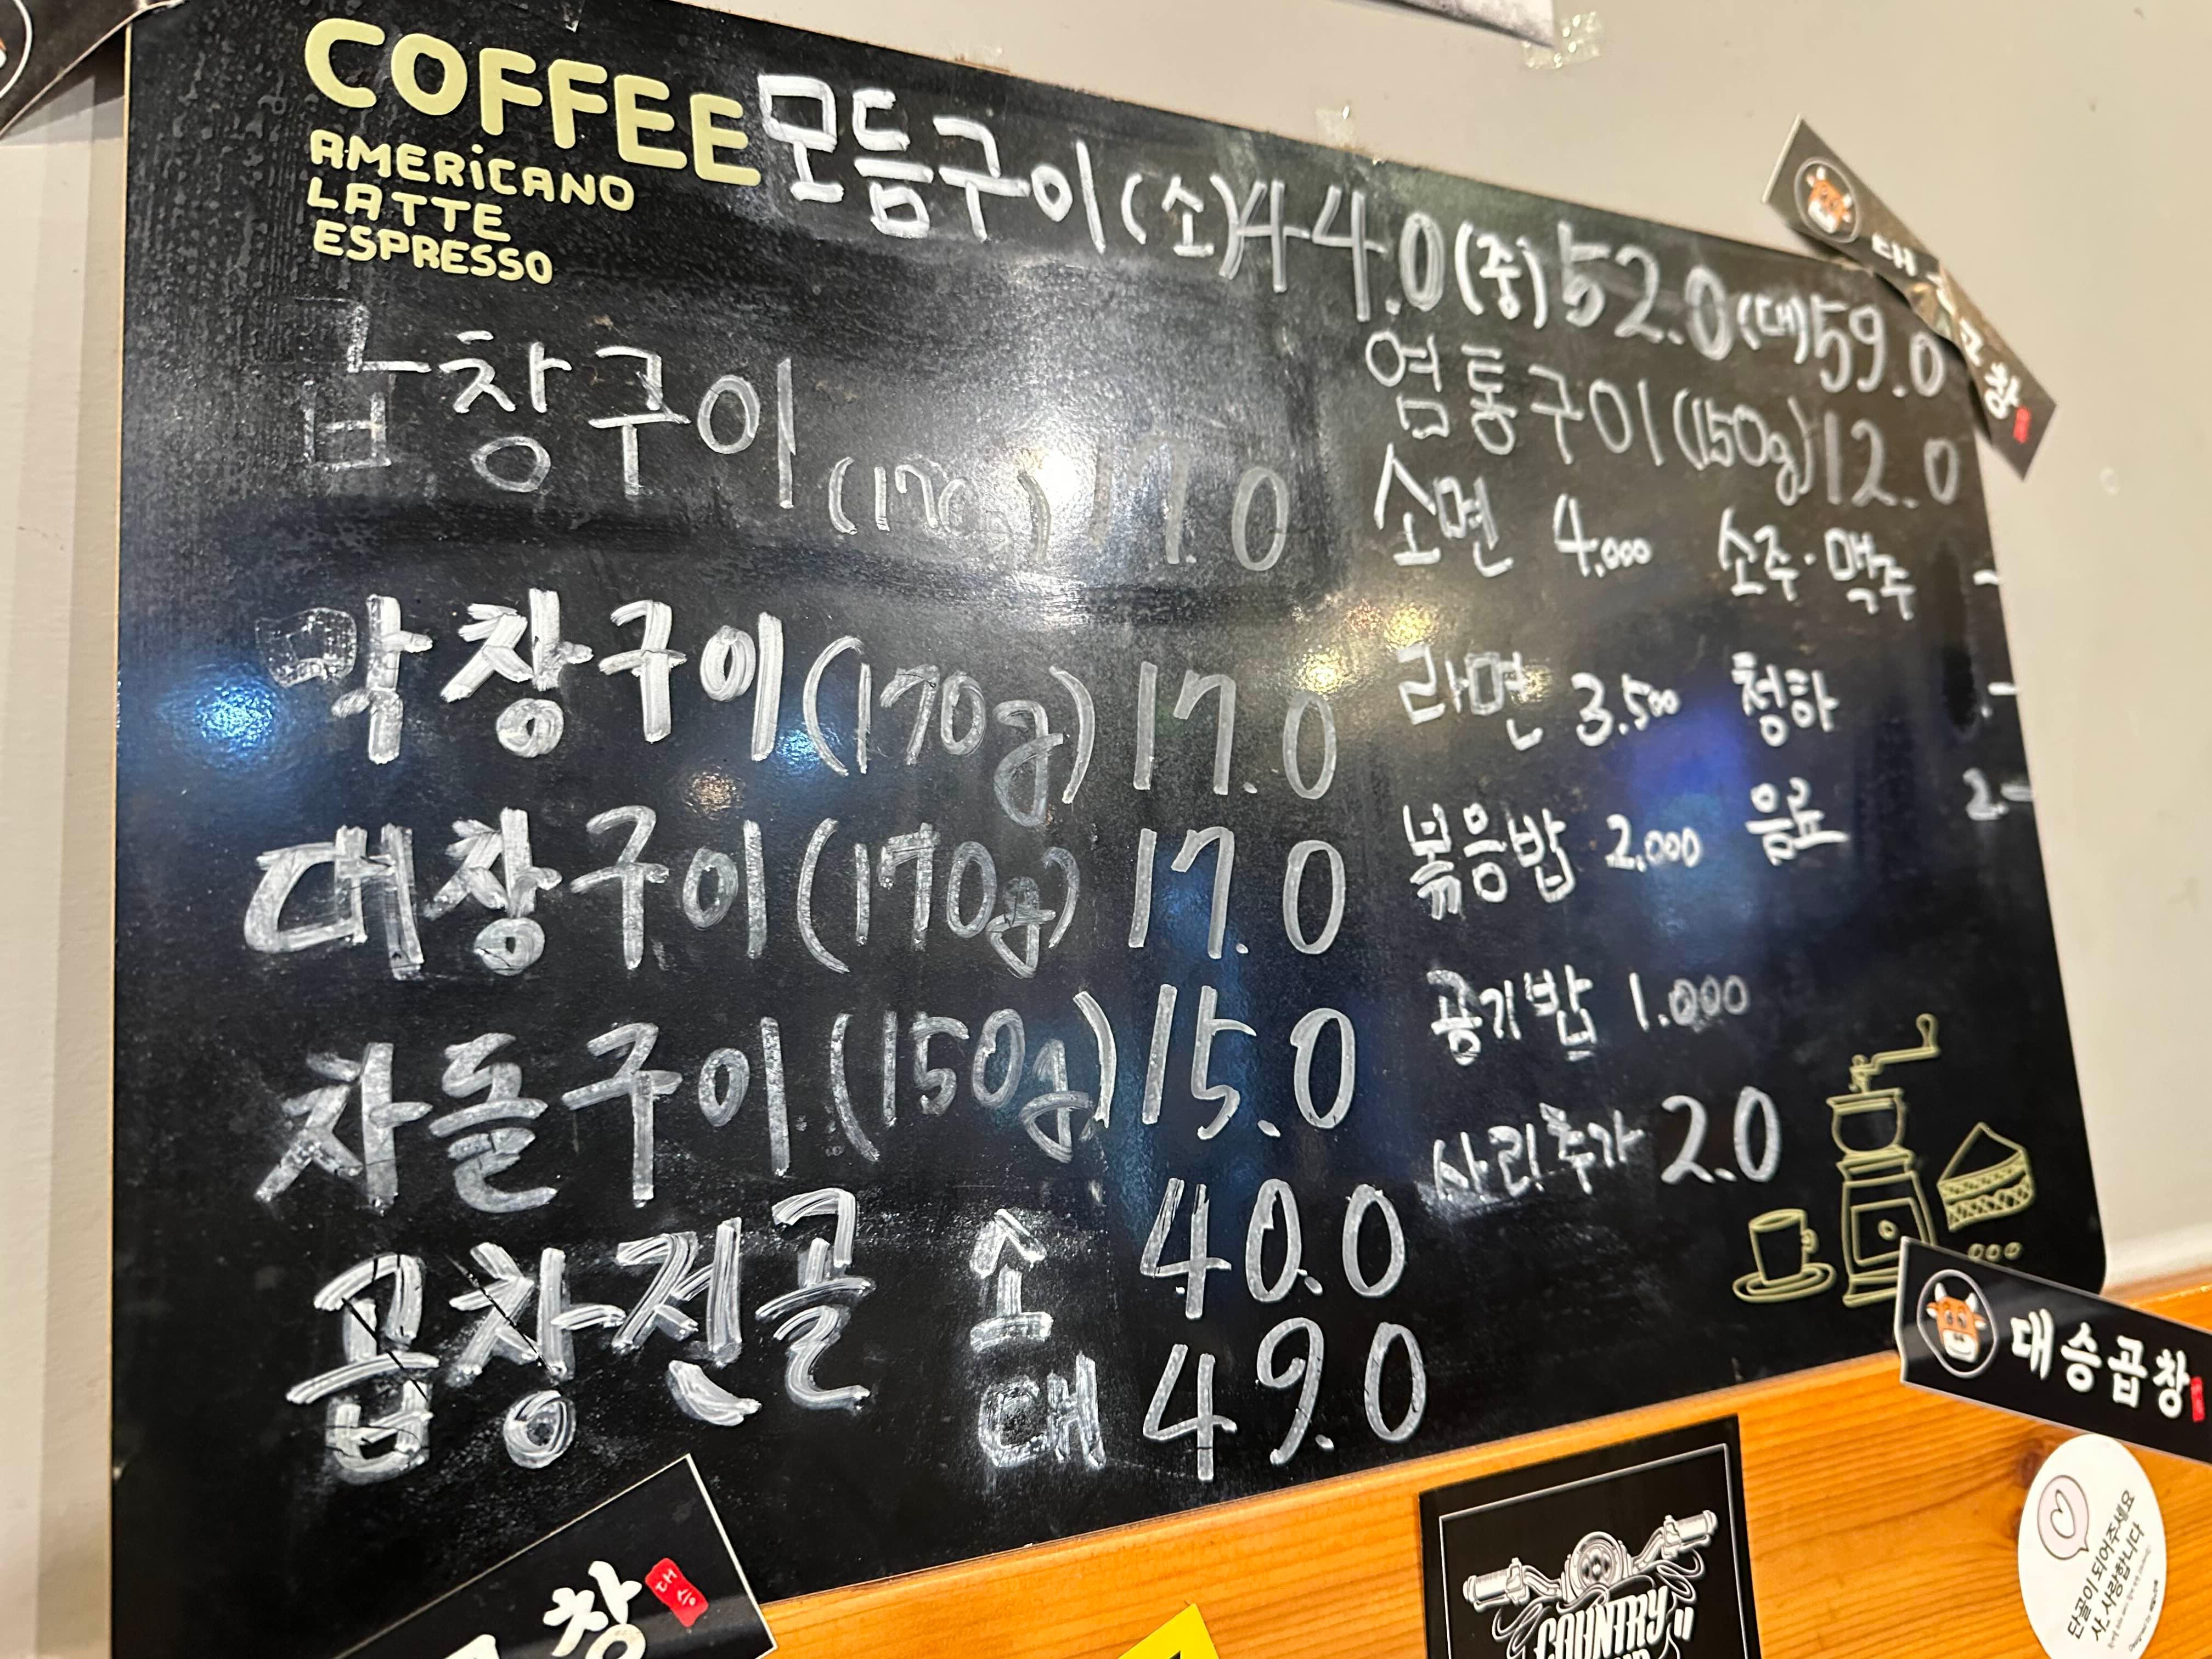 COFFEE
AMERiCANO
LATTE
ESPRESSO
모듬구이(소)44.0(중)52.0(대)59.0
곱창구이 17.0
막창구이(170g)17.0
대창구이(170g)17.0
차돌구이(150g)15.0
곱창전골 소 40.0
대 49.0
염통구이(150g)12.0
소면 4,000 소주·맥주
라면 3.500 청하
볶음밥 2,000 음료 2.-
공기밥 1.000
사리추가 2.0
대승곱창
창
대승
COUNTRY
단골이 되어주세요
사..사랑합니다